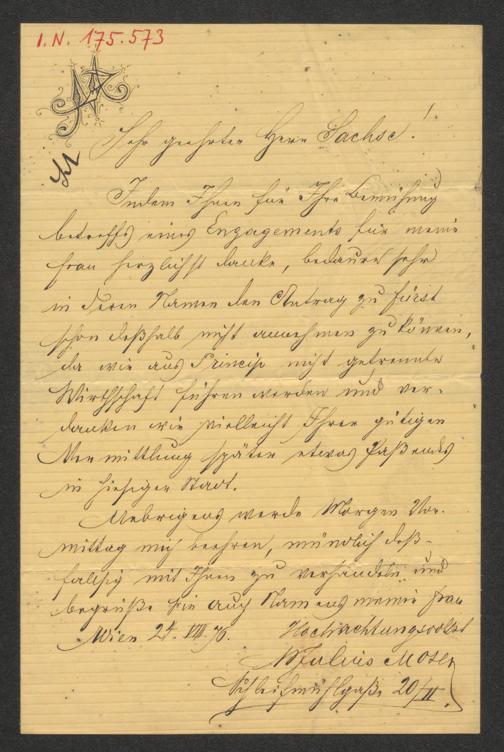 I.N. 175.573
Sehr geehrter Herr Sachse!
Indem Ihnen für Ihre Bemühung
betreffs eines Engagements für meine
Frau herzlichst danke, bedaure sehr
in deren Namen den Antrag zu Fürst
schon deßhalb nicht annehmen zu können,
da wir aus Princip nicht getrennte
Wirthschaft führen werden und ver-
danken wir vielleicht Ihrer gütigen
Vermittlung später etwas Paßendes
in hiesiger Stadt.
Uebrigens werde Morgen Vor-
mittag mich beehren, mündlich deß-
falsig mit Ihnen zu verhandeln und
begrüße Sie auch Namens meiner Frau
Wien 24. VIII. 70. Hochachtungsvollst
Julius Moser
Schleifmühlgaße 20/II